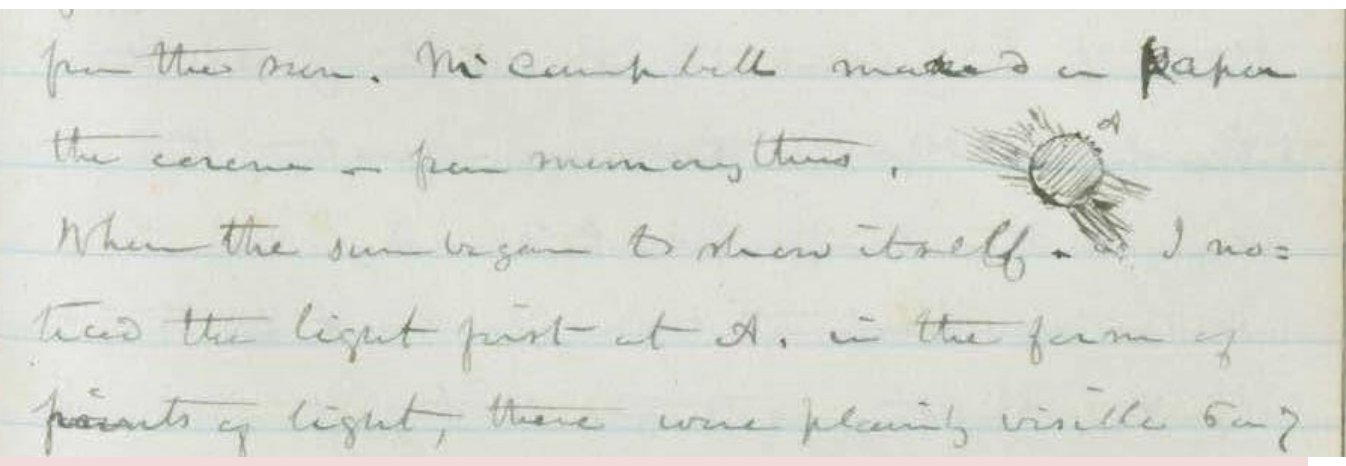 from the sun. Mr Campbell marked on paper
the corona - from memory thus.
A
When the sun began to show itself. I no=
ticed the light first at A. in the form of
points of light, there were plainly visible 5 or 7